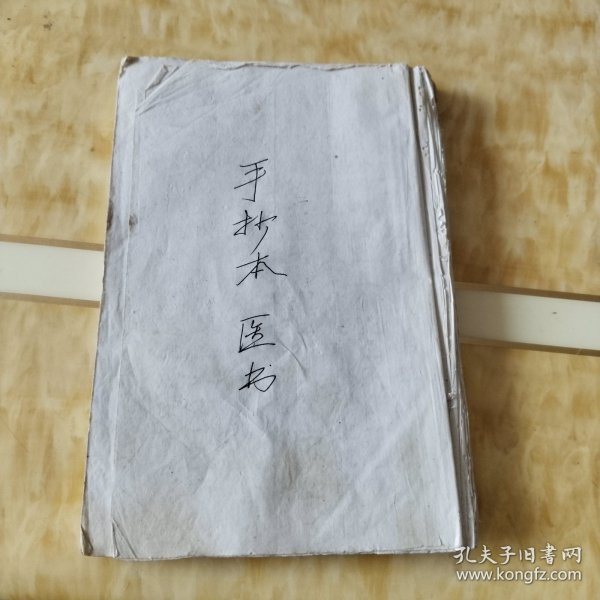 手抄本 医书
孔夫子旧書网
www.kongfz.com